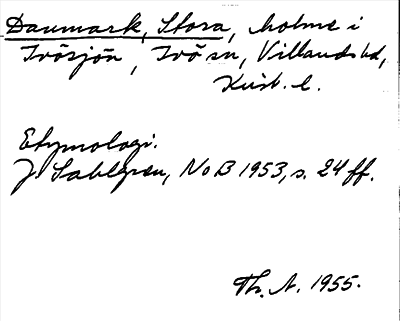 Danmark, Stora, holme i
Ivösjön, Ivö sn, Villands hd,
Krist. l.
Etymologi.
J. Sahlgren, NoB 1953, s. 24 ff.
Th. A. 1955.